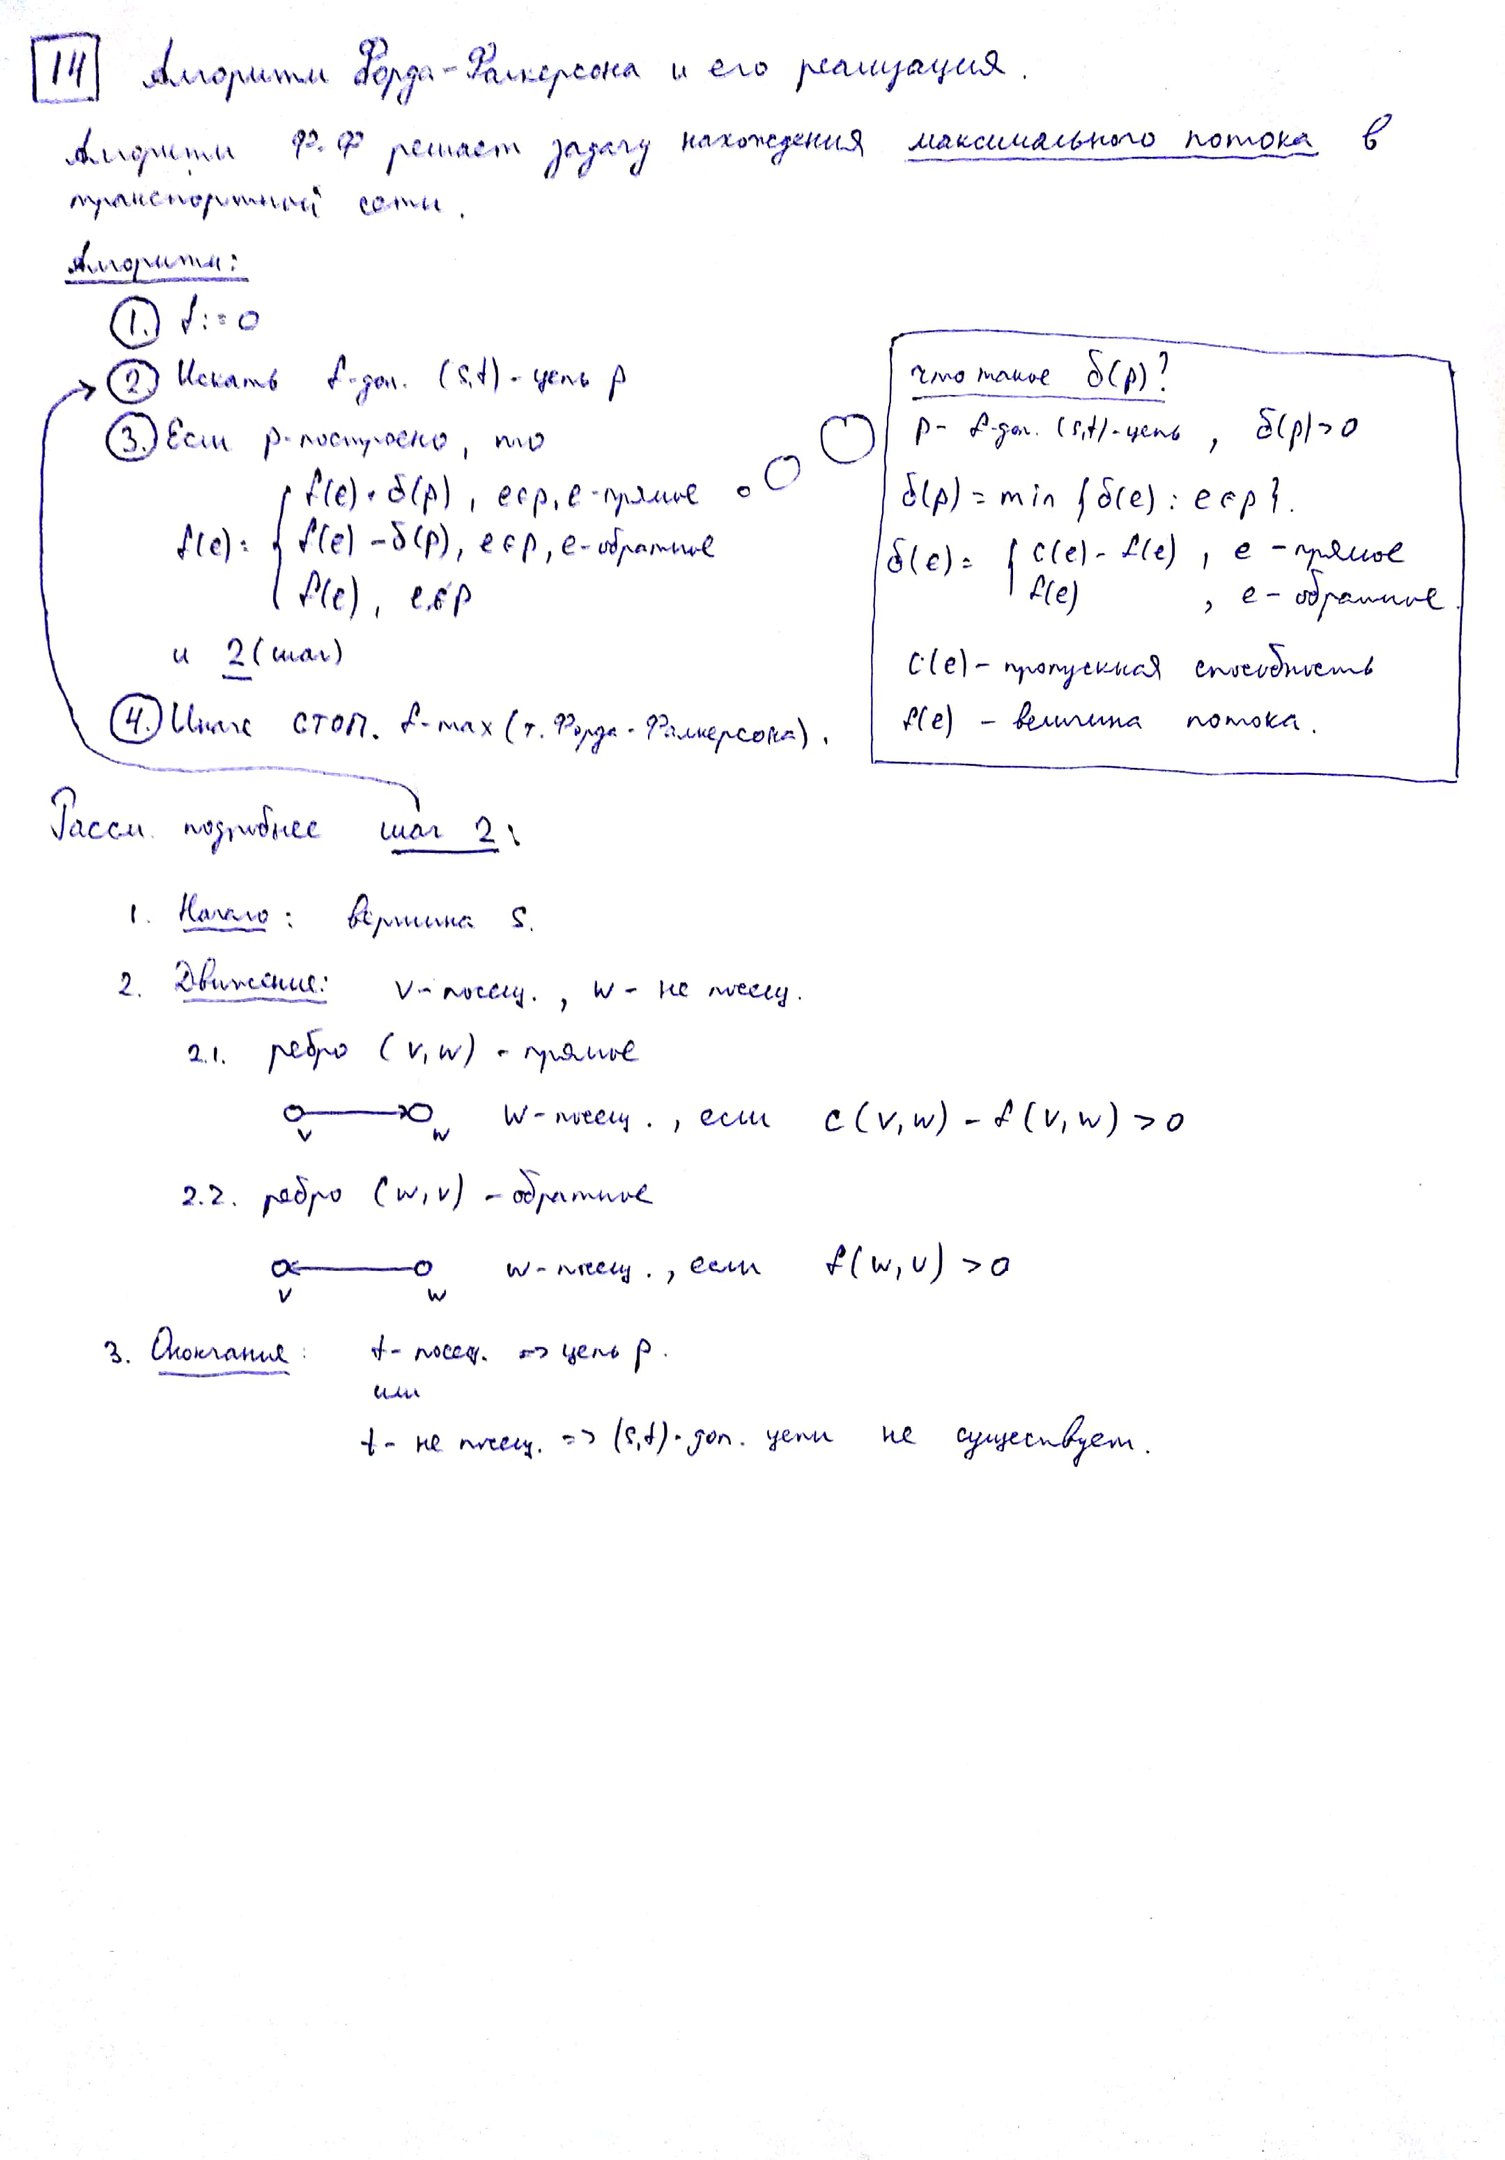 14 Алгоритм Форда-Фалкерсона и его реализация.
Алгоритм Ф.Ф решает задачу нахождения максимального потока в
транспортной сети.
Алгоритм:
1. f:=0
2. Искать f-доп. (s,t)-цепь p
3. Если p-построено, то
f(e)= { f(e)+δ(p), e∈p, e-прямое
f(e)-δ(p), e∈p, e-обратное
f(e), e∉p
и 2(шаг)
4. Иначе СТОП. f-max (т. Форда-Фалкерсона).
Что такое δ(p)?
p- f-доп. (s,t)-цепь, δ(p)>0
δ(p)= min {δ(e): e∈p}.
δ(e)= { c(e)-f(e), e-прямое
f(e), e-обратное.
c(e)-пропускная способность
f(e) - величина потока.
Рассм. подробнее шаг 2:
1. Начало: вершина s.
2. Движение: v-посещ., w- не посещ.
2.1. ребро (v,w) - прямое
v w w-посещ., если c(v,w)-f(v,w)>0
2.2. ребро (w,v) - обратное
v w w-посещ., если f(w,v)>0
3. Окончание: t- посещ. => цепь p.
или
t- не посещ. => (s,t)-доп. цепи не существует.